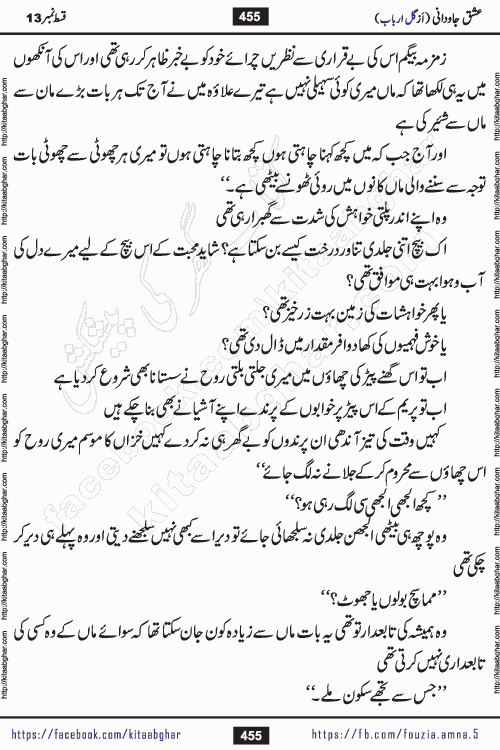 عشق جاودانی (از گل ارباب)
455
قسط نمبر 13
زمزمہ بیگم اس کی بے قراری سے نظریں چرائے خود کو بے خبر ظاہر کر رہی تھی اور اس کی آنکھوں
میں یہ ہی لکھا تھا کہ ماں میری کوئی سہیلی نہیں ہے تیرے علاوہ میں نے آج تک ہر بات بڑے مان سے
ماں سے شئیر کی ہے
اور آج جب کہ میں کچھ کہنا چاہتی ہوں کچھ بتانا چاہتی ہوں تو میری ہر چھوٹی سے چھوٹی بات
توجہ سے سننے والی ماں کانوں میں روئی ٹھونسے بیٹھی ہے۔“
وہ اپنے اندر پلتی خواہش کی شدت سے گھبرا رہی تھی
اک بیج اتنی جلدی تناور درخت کیسے بن سکتا ہے؟ شاید محبت کے اس بیج کے لیے میرے دل کی
آب و ہوا بہت ہی موافق تھی؟
یا پھر خواہشات کی زمین بہت زرخیز تھی؟
یا خوش فہمیوں کی کھاد وافر مقدار میں ڈال دی تھی؟
اب تو اس گھنے پیڑ کی چھاؤں میں میری جلتی بلتی روح نے سستانا بھی شروع کر دیا ہے
اب تو پریم کے اس پیڑ پر خوابوں کے پرندے اپنے آشیانے بھی بنا چکے ہیں
کہیں وقت کی تیز آندھی ان پرندوں کو بے گھر ہی نہ کر دے کہیں خزاں کا موسم میری روح کو
اس چھاؤں سے محروم کر کے جلانے نہ لگ جائے“
”کچھ الجھی الجھی سی لگ رہی ہو؟“
وہ پوچھ ہی بیٹھی الجھن جلدی نہ سلجھائی جائے تو دیر اسے کبھی نہیں سلجھنے دیتی اور وہ پہلے ہی دیر کر
چکی تھی
”مما سچ بولوں یا جھوٹ؟“
وہ ہمیشہ کی تابعدار تو تھی یہ بات ماں سے زیادہ کون جان سکتا تھا کہ سوائے ماں کے وہ کسی کی
تابعداری نہیں کرتی تھی
”جس سے تجھے سکون ملے۔“
http://kitaabghar.com
facebook.com/kitaabghar
https://facebook.com/kitaabghar
455
https://fb.com/fouzia.amna.5